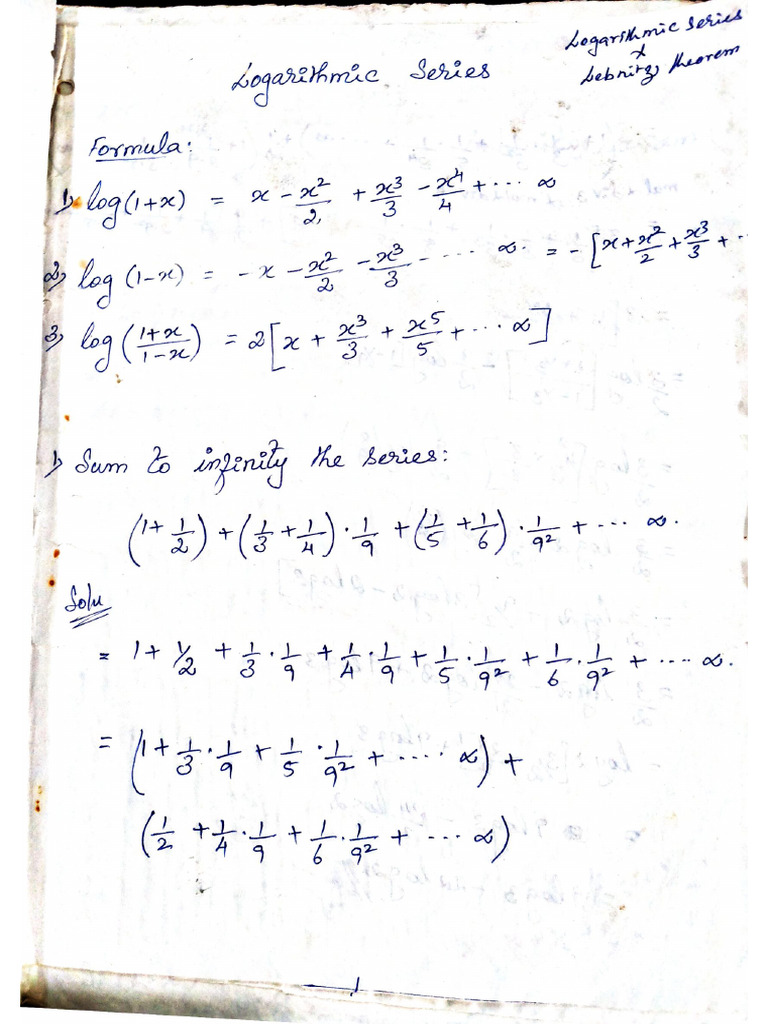 Logarithmic Series
x
Lebnitz theorem
Logarithmic Series
Formula:
1) log(1+x) = x - x²/2 + x³/3 - x⁴/4 + ... ∞
2) log(1-x) = -x - x²/2 - x³/3 - ... ∞. = -[x + x²/2 + x³/3 + ..
3) log((1+x)/(1-x)) = 2[x + x³/3 + x⁵/5 + ... ∞]
1) Sum to infinity the series:
(1+1/2) + (1/3+1/4)·1/9 + (1/5+1/6)·1/9² + ... ∞.
Solu
= 1 + 1/2 + 1/3·1/9 + 1/4·1/9 + 1/5·1/9² + 1/6·1/9² + .... ∞.
= (1 + 1/3·1/9 + 1/5·1/9² + .... ∞) +
(1/2 + 1/4·1/9 + 1/6·1/9² + ... ∞)
1